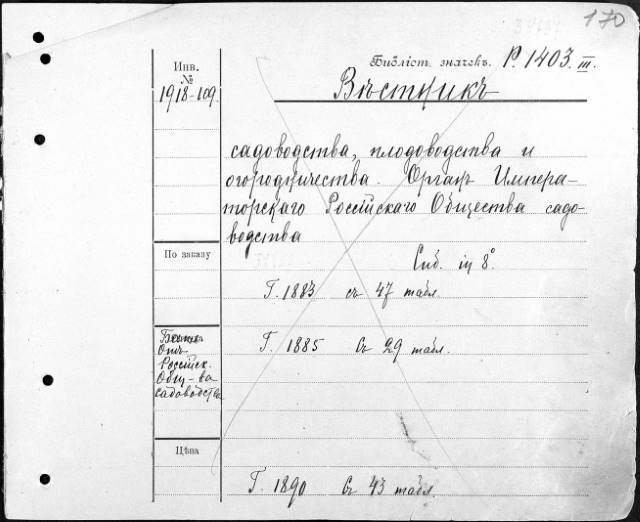 170
Инв.
№
1918-109.
Библіот. значекъ. Р. 1403. III.
Вѣстникъ
садоводства, плодоводства и
огородничества. Органъ Импера-
торскаго Россійскаго Общества садо-
водства
Спб. in 8°
По заказу
Г. 1883 съ 47 табл.
Отъ
Россійск.
Общ-ва
садоводства
Г. 1885 Съ 29 табл.
Цѣна
Г. 1890 Съ 43 табл.